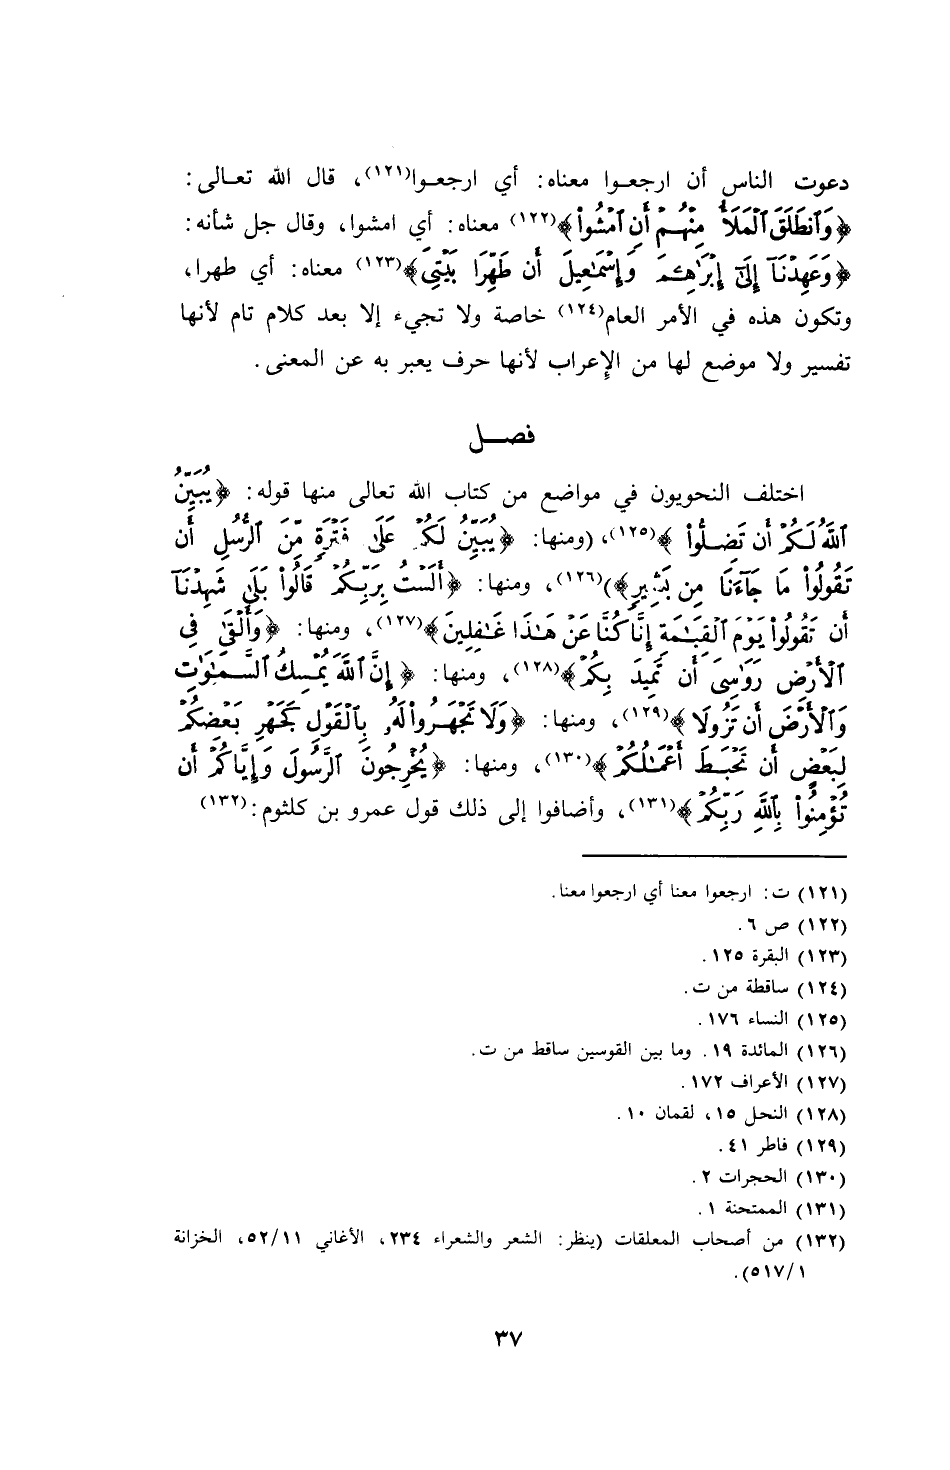 دعوت الناس أن ارجعـوا معناه: أي ارجعـوا(١٢١)، قال الله تعـالى:
﴿وَٱنطَلَقَ ٱلْمَلَأُ مِنْهُمْ أَنِ ٱمْشُوا۟﴾(١٢٢) معناه: أي امشوا، وقال جل شأنه:
﴿وَعَهِدْنَآ إِلَىٰٓ إِبْرَٰهِـۧمَ وَإِسْمَٰعِيلَ أَن طَهِّرَا بَيْتِىَ﴾(١٢٣) معناه: أي طهرا،
وتكون هذه في الأمر العام(١٢٤) خاصة ولا تجيء إلا بعد كلام تام لأنها
تفسير ولا موضع لها من الإعراب لأنها حرف يعبر به عن المعنى.
فصــل
اختلف النحويون في مواضع من كتاب الله تعالى منها قوله: ﴿يُبَيِّنُ
ٱللَّهُ لَكُمْ أَن تَضِلُّوا۟﴾(١٢٥)، (ومنها: ﴿يُبَيِّنُ لَكُمْ عَلَىٰ فَتْرَةٍ مِّنَ ٱلرُّسُلِ أَن
تَقُولُوا۟ مَا جَآءَنَا مِن بَشِيرٍ﴾)(١٢٦)، ومنها: ﴿أَلَسْتُ بِرَبِّكُمْ قَالُوا۟ بَلَىٰ شَهِدْنَآ
أَن تَقُولُوا۟ يَوْمَ ٱلْقِيَٰمَةِ إِنَّا كُنَّا عَنْ هَٰذَا غَٰفِلِينَ﴾(١٢٧)، ومنها: ﴿وَأَلْقَىٰ فِى
ٱلْأَرْضِ رَوَٰسِىَ أَن تَمِيدَ بِكُمْ﴾(١٢٨)، ومنها: ﴿إِنَّ ٱللَّهَ يُمْسِكُ ٱلسَّمَٰوَٰتِ
وَٱلْأَرْضَ أَن تَزُولَا﴾(١٢٩)، ومنها: ﴿وَلَا تَجْهَرُوا۟ لَهُۥ بِٱلْقَوْلِ كَجَهْرِ بَعْضِكُمْ
لِبَعْضٍ أَن تَحْبَطَ أَعْمَٰلُكُمْ﴾(١٣٠)، ومنها: ﴿يُخْرِجُونَ ٱلرَّسُولَ وَإِيَّاكُمْ أَن
تُؤْمِنُوا۟ بِٱللَّهِ رَبِّكُمْ﴾(١٣١)، وأضافوا إلى ذلك قول عمرو بن كلثوم:(١٣٢)
(١٢١) ت: ارجعوا معنا أي ارجعوا معنا.
(١٢٢) ص ٦.
(١٢٣) البقرة ١٢٥.
(١٢٤) ساقطة من ت.
(١٢٥) النساء ١٧٦.
(١٢٦) المائدة ١٩. وما بين القوسين ساقط من ت.
(١٢٧) الأعراف ١٧٢.
(١٢٨) النحل ١٥، لقمان ١٠.
(١٢٩) فاطر ٤١.
(١٣٠) الحجرات ٢.
(١٣١) الممتحنة ١.
(١٣٢) من أصحاب المعلقات (ينظر: الشعر والشعراء ٢٣٤، الأغاني ٥٢/١١، الخزانة
٥١٧/١).
٣٧